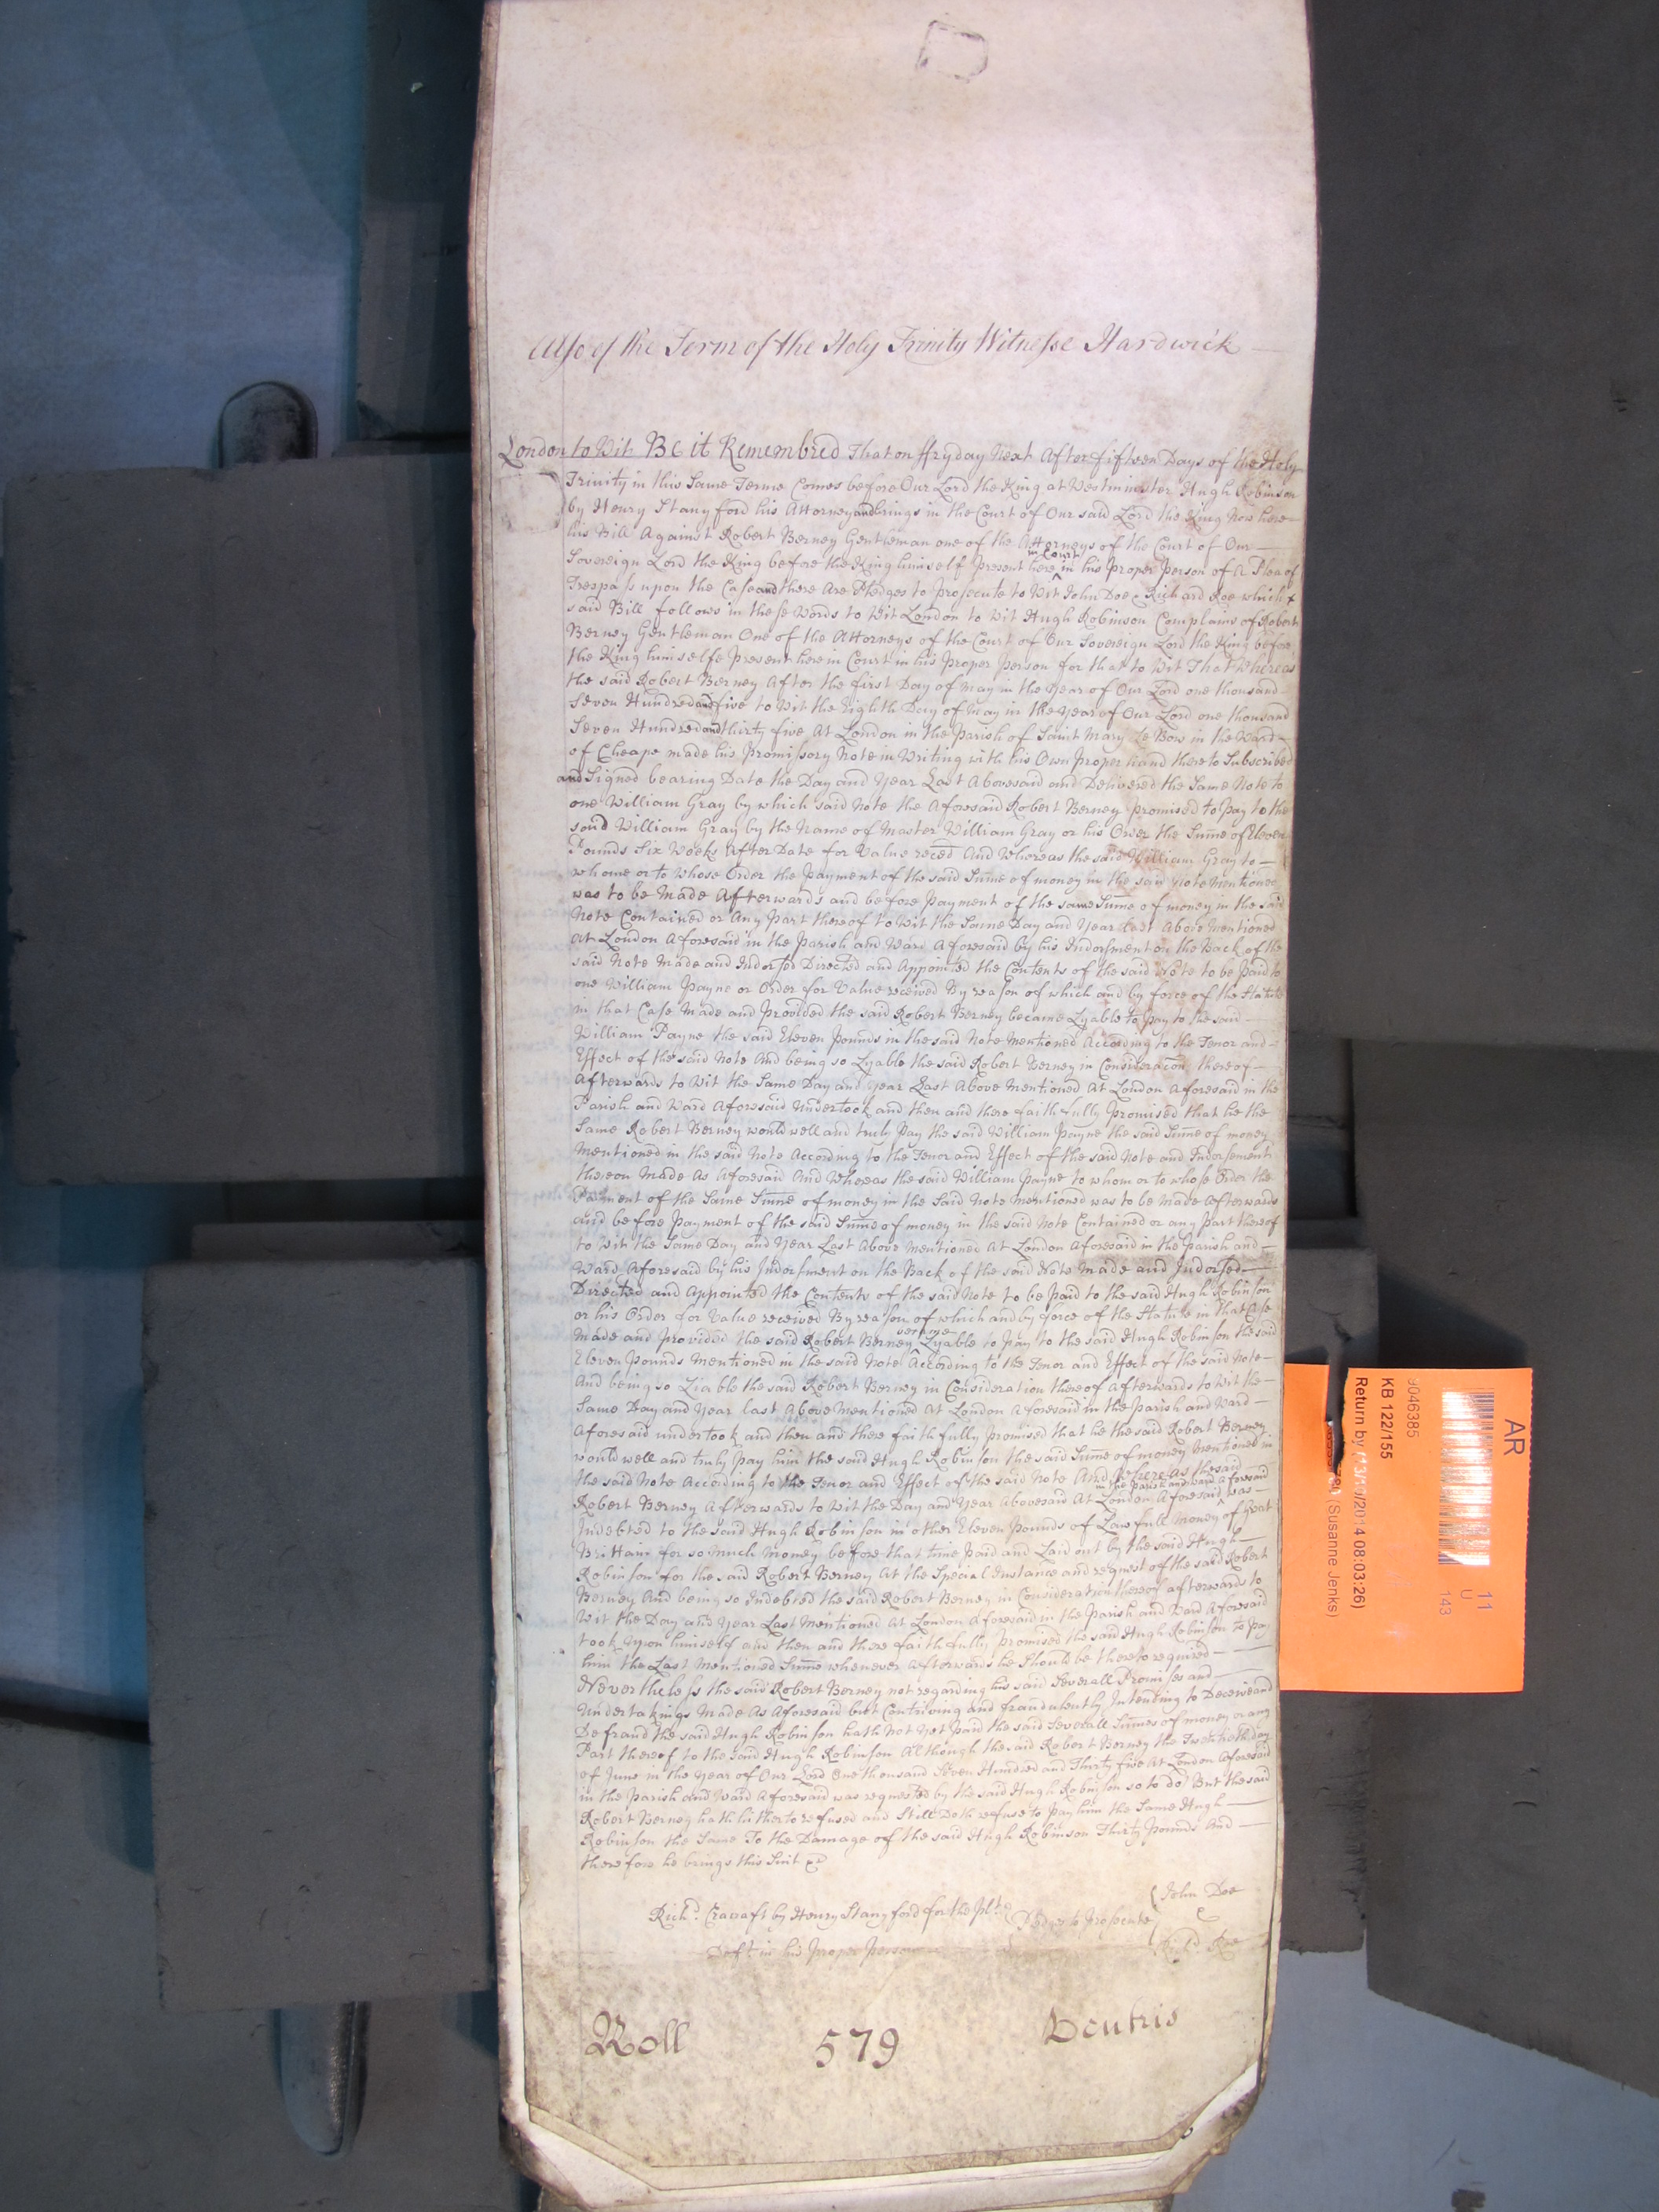 Also of the Term of the Holy Trinity Witnesse Hardwick
London to Wit Be it Remembred That on ffryday Next After fifteen Days of the Holy
Trinity in this Same Terme Comes before Our Lord the King at Westminster Hugh Robinson
by Henry Stanyford his Attorney and brings in the Court of Our said Lord the King Now here
his Bill Against Robert Berney Gentleman one of the Attorneys of the Court of Our
Sovereign Lord the King before the King himself Present here in Court in his Proper Person of A Plea of
Trespass upon the Case and there Are Pledges to Prosecute to Wit John Doe & Richard Roe which
said Bill follows in these Words to Wit London to Wit Hugh Robinson Complains of Robert
Berney Gentleman One of the Attorneys of the Court of Our Sovereign Lord the King before
the King himselfe Present here in Court in his Proper person for that to Wit That Whereas
the said Robert Berney After the first Day of May in the Year of Our Lord one thousand
Seven Hundred and five to Wit the Eighth Day of May in the Year of Our Lord one thousand
Seven Hundred and thirty five At London in the Parish of Saint Mary Le Bow in the Ward
of Cheape made his Promissory Note in Writing with his Own Proper hand thereto Subscribed
and Signed bearing Date the Day and Year Last Abovesaid and Delivered the Same Note to
one William Gray by which said Note the Aforesaid Robert Berney Promised to Pay to the
said William Gray by the Name of Master William Gray or his Order the Sum̄e of Eleven
Pounds Six Weeks After Date for Value reced And Whereas the said William Gray to
whome or to whose Order the Payment of the said Sum̄e of money in the said Note Mentioned
was to be Made Afterwards and before Payment of the same Sume of money in the said
Note Contained or Any Part thereof to Wit the Same Day and Year Last Above Mentioned
At London Aforesaid in the Parish and Ward Aforesaid by his Indorsment on the Back of the
said Note Made and Indorsed Directed and Appointed the Contents of the said Note to be Paid to
one William Payne or Order for Value received By reason of which and by force of the Statute
in that Case Made and Provided the said Robert Berney became Lyable to Pay to the said
William Payne the said Eleven Pounds in the said Note Mentioned According to the Tenor and
Effect of the said Note And being so Lyable the said Robert Berney in Consideracon thereof
Afterwards to Wit the Same Day and Year Last Above Mentioned At London Aforesaid in the
Parish and Ward Aforesaid Undertook and then and there faithfully Promised that he the
Same Robert Berney would well and truly Pay the said William Payne the said Sum̄e of money
Mentioned in the said Note According to the Tenor and Effect of the said Note and Indorsement
thereon Made As Aforesaid And Whereas the said William Payne to whom or to whose Order the
Payment of the Same Sum̄e of money in the Said Note Mentioned was to be Made Afterwards
and before Payment of the said Sum̄e of money in the said Note Contained or any Part thereof
to Wit the Same Day and Year Last Above Mentioned At London Aforesaid in the Parish and
Ward Aforesaid by his Indorsment on the Back of the said Note Made and Indorsed
Directed and Appointed the Contents of the said Note to be Paid to the said Hugh Robinson
or his Order for Value received By reason of which and by force of the Statute in that Case
Made and Provided the said Robert Berney became Lyable to Pay to the said Hugh Robinson the said
Eleven Pounds Mentioned in the said Note According to the Tenor and Effect of the said Note
And being so Liable the said Robert Berney in Consideration thereof Afterwards to Wit the
Same Day and Year last Above Mentioned At London Aforesaid in the Parish and Ward
Aforesaid undertook and then and there faithfully promised that he the said Robert Berney
would well and truly Pay him the said Hugh Robinson the said Sum̄e of money Mentioned in
the said Note According to the Tenor and Effect of the said Note And Where As the said
Robert Berney Afterwards to Wit the Day and Year Abovesaid At London Aforesaid in the Parish and Ward aforesaid was
Indebted to the said Hugh Robinson in other Eleven Pounds of Lawfull Money of Great
Brittain for so much Money before that time Paid and Laid out by the said Hugh
Robinson for the said Robert Berney At the Special Instance and request of the said Robert
Berney And being so Indebted the said Robert Berney in Consideration thereof afterwards to
Wit the Day and Year Last Mentioned At London Aforesaid in the Parish and Ward Aforesaid
took Upon himself and then and there faithfully Promised the said Hugh Robinson to Pay
him the Last Mentioned Sum̄e whenever Afterwards he Should be thereto required
Nevertheless the said Robert Berney not regarding his said Severall Promises and
Undertakings Made As Aforesaid but Contriving and fraudulently Intending to Deceive and
Defraud the said Hugh Robinson hath Not Yet Paid the said Severall Sum̄es of money or any
Part thereof to the said Hugh Robinson Although the said Robert Berney the Twentieth day
of June in the Year of Our Lord One thousand Seven Hundred and Thirty five At London Aforesaid
in the Parish and Ward Aforesaid was requested by the said Hugh Robinson so to do But the said
Robert Berney hath hitherto refused and Still Doth refuse to Pay him the Same Hugh
Robinson the Same To the Damage of the said Hugh Robinson Thirty Pounds And
therefore he brings this Suit &c
Richd. Cracraft by Henry Stanyford for the Plt. Pledges to Prosecute John Doe
&
Deft. in his Proper Person Richd. Roe
Roll 579 Dentris
AR
11
U
143
9046385
KB 122/155
Return by (13/10/2014 08:03:26)
(Susanne Jenks)